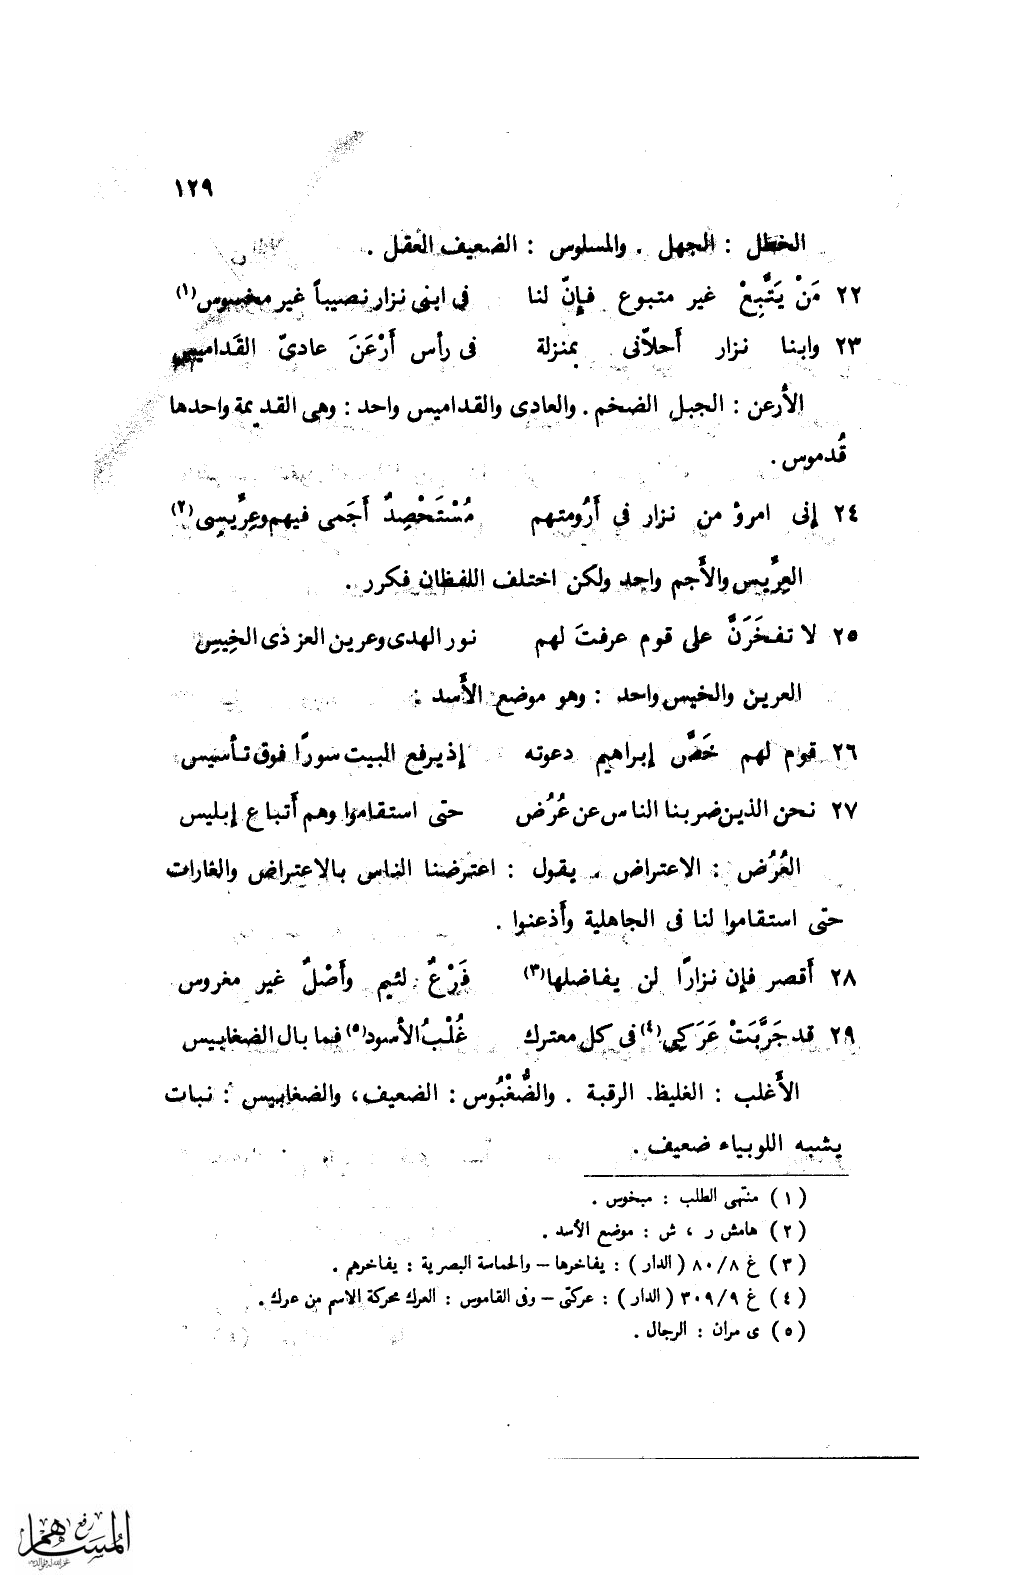 ١٢٩
الخطل : الجهل . والمسلوس : الضعيف العقل .
٢٢ مَنْ يَتَّبِعْ غير متبوع فإنّ لنا في ابنى نزار نصيباً غير مخسوس(١)
٢٣ وابنا نزار أَحلاّنى بمنزلة فى رأس أَرْعَنَ عاديّ القَداميس
الأَرعن : الجبل الضخم . والعادى والقداميس واحد : وهى القديمة واحدها
قُدموس .
٢٤ إنى امرؤ من نزار في أَرُومتهم مُسْتَحْصِدٌ أَجَمى فيهم وعِرِّيسِى(٢)
العِرِّيس والأَجم واحد ولكن اختلف اللفظان فكرر .
٢٥ لا تفخَرَنَّ على قوم عرفتَ لهم نور الهدى وعرين العز ذى الخِيسِ
العرين والخيس واحد : وهو موضع الأَسد .
٢٦ قوم لهم خَصَّ إبراهيم دعوته إذ يرفع البيت سورًا فوق تأسيس
٢٧ نحن الذين ضربنا الناس عن عُرُض حتى استقاموا وهم أَتباع إبليس
العُرُض : الاعتراض . يقول : اعترضنا الناس بالاعتراض والغارات
حتى استقاموا لنا فى الجاهلية وأَذعنوا .
٢٨ أَقصر فإن نزارًا لن يفاضلها(٣) فَرْعٌ لئيم وأَصْلٌ غير مغروس
٢٩ قد جَرَّبَتْ عَرَكِي(٤) فى كل معترك غُلْبُ الأسود(٥) فما بال الضغابيس
الأَغلب : الغليظ الرقبة . والضُّغْبُوس : الضعيف، والضغابيس : نبات
يشبه اللوبياء ضعيف .
(١) منتهى الطلب : مبخوس .
(٢) هامش ر ، ش : موضع الأسد .
(٣) غ ٨٠/٨ (الدار) : يفاخرها – والحماسة البصرية : يفاخرهم .
(٤) غ ٣٠٩/٩ (الدار) : عركتى – وفى القاموس : العرك محركة الاسم من عرك .
(٥) ى مران : الرجال .